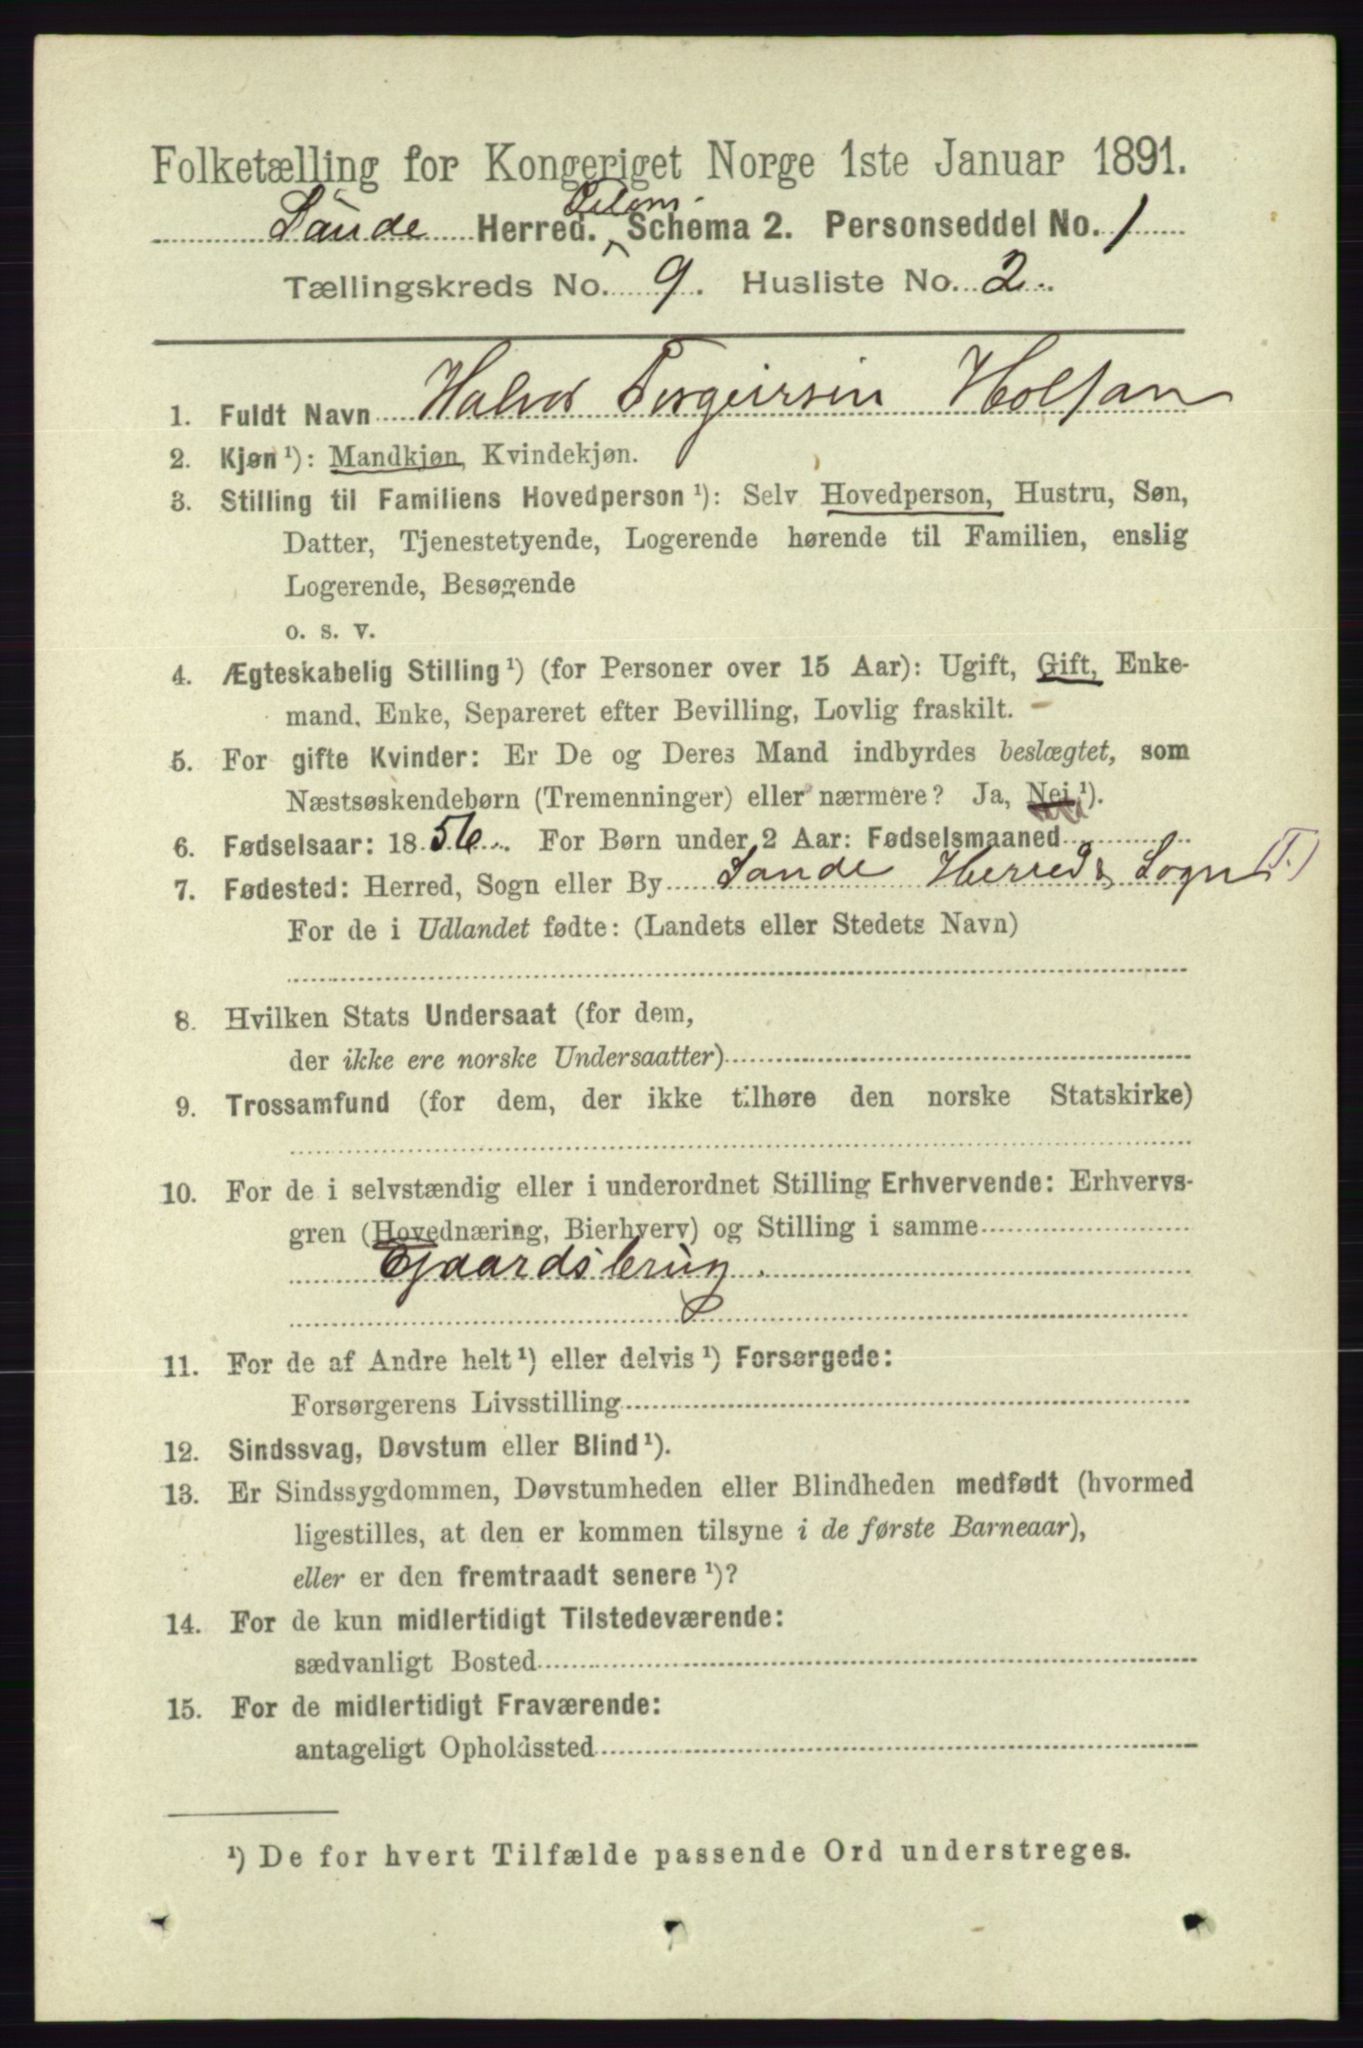 Folketælling for Kongeriget Norge 1ste Januar 1891.
Telem.
Saude Herred. Schema 2. Personseddel No. 1
Tællingskreds No. 9. Husliste No. 2.
1. Fuldt Navn Halvor Torgeirsen Holtan
2. Kjøn ¹): Mandkjøn, Kvindekjøn.
3. Stilling til Familiens Hovedperson ¹): Selv Hovedperson, Hustru, Søn,
Datter, Tjenestetyende, Logerende hørende til Familien, enslig
Logerende, Besøgende
o. s. v.
4. Ægteskabelig Stilling ¹) (for Personer over 15 Aar): Ugift, Gift, Enke-
mand, Enke, Separeret efter Bevilling, Lovlig fraskilt.
5. For gifte Kvinder: Er De og Deres Mand indbyrdes beslægtet, som
Næstsøskendebørn (Tremenninger) eller nærmere? Ja, Nei ¹).
6. Fødselsaar: 1856. For Børn under 2 Aar: Fødselsmaaned
7. Fødested: Herred, Sogn eller By Saude Herreds Sogn (T.)
For de i Udlandet fødte: (Landets eller Stedets Navn)
8. Hvilken Stats Undersaat (for dem,
der ikke ere norske Undersaatter)
9. Trossamfund (for dem, der ikke tilhøre den norske Statskirke)
10. For de i selvstændig eller i underordnet Stilling Erhvervende: Erhvervs-
gren (Hovednæring, Bierhverv) og Stilling i samme
Gaardsbrug.
11. For de af Andre helt ¹) eller delvis ¹) Forsørgede:
Forsørgerens Livsstilling
12. Sindssvag, Døvstum eller Blind ¹).
13. Er Sindssygdommen, Døvstumheden eller Blindheden medfødt (hvormed
ligestilles, at den er kommen tilsyne i de første Barneaar),
eller er den fremtraadt senere ¹)?
14. For de kun midlertidigt Tilstedeværende:
sædvanligt Bosted
15. For de midlertidigt Fraværende:
antageligt Opholdssted
¹) De for hvert Tilfælde passende Ord understreges.